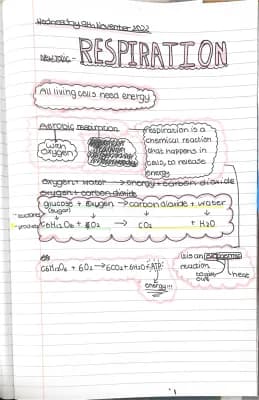 Wednesday 9th November 2022
NEW TOPIC - RESPIRATION
All living cells need energy
Aerobic respiration
with oxygen
respiration is a
chemical reaction
that happens in
cells, to release
energy
oxygen + water → energy + carbon dioxide
oxygen + carbon dioxide
glucose + oxygen → carbon dioxide + water
(sugar)
C6H12O6 + 6O2 → CO2 + H2O
C6H12O6 + 6O2 → 6CO2 + 6H2O + ATP
energy!!!
is an exothermic
reaction
heat